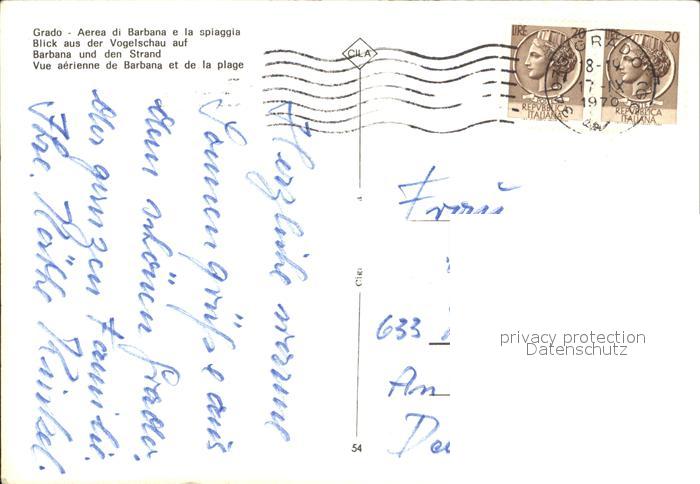 Grado - Aerea di Barbana e la spiaggia
Blick aus der Vogelschau auf
Barbana und den Strand
Vue aérienne de Barbana et de la plage
CILA
LIRE 20
REPUBBLICA
ITALIANA
LIRE 20
REPUBBLICA
ITALIANA
GRADO
18-19
17-IX
1970
Herzliche warme
Sonnengrüße aus
dem schönen Grado,
der ganzen Familie
Ihre Käthe
Frau
633
An
54
privacy protection
Datenschutz